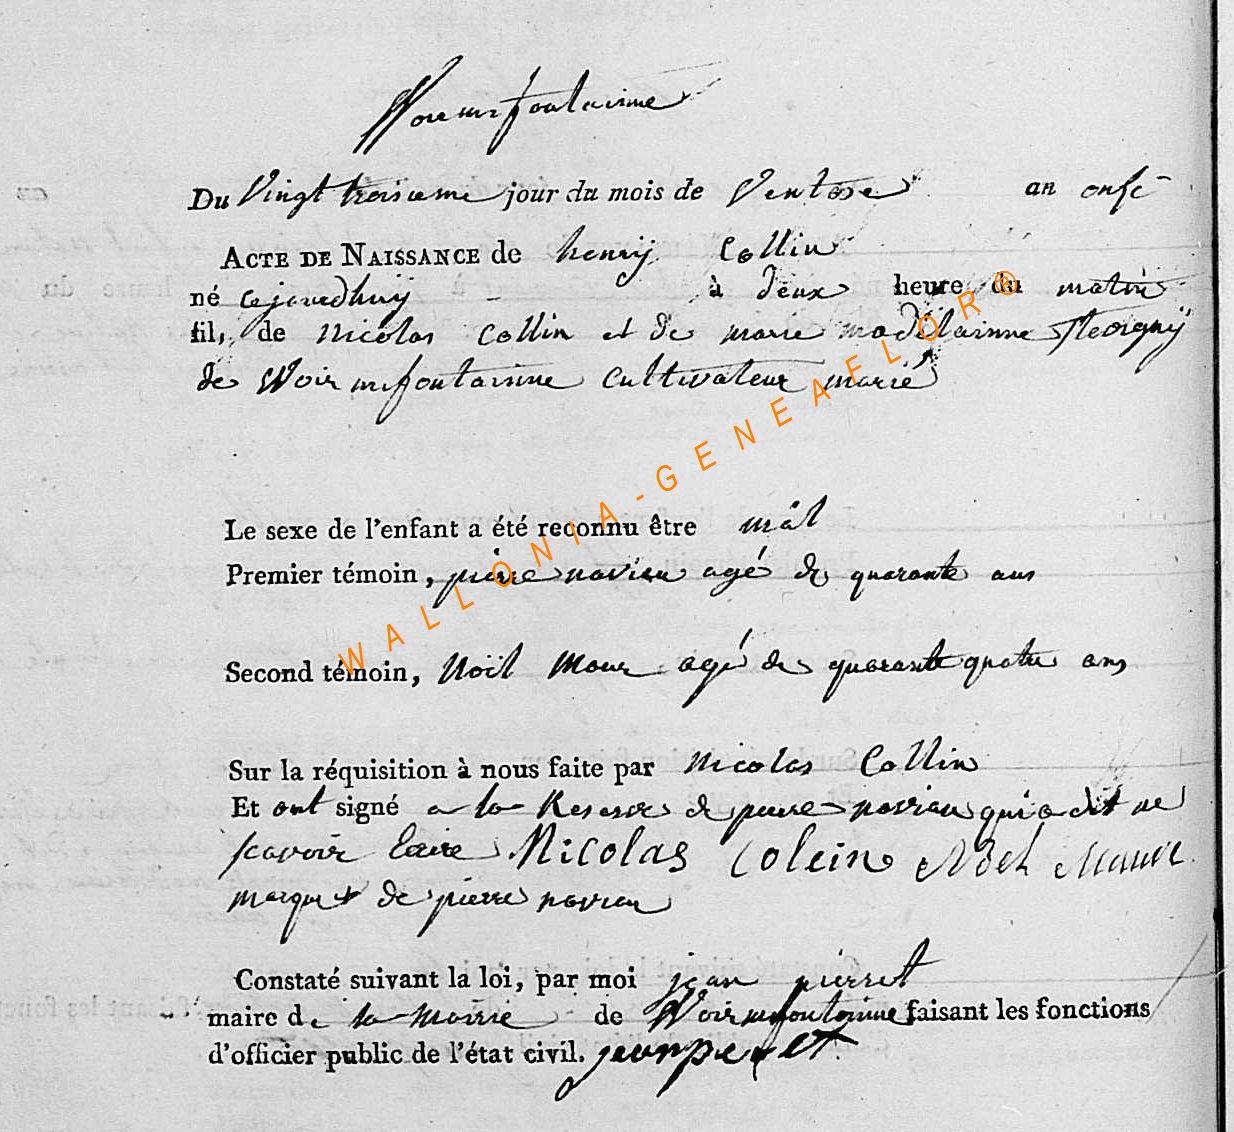 Du Vingt troisieme jour du mois de Ventose an onse
ACTE DE NAISSANCE de henrÿ Collin
né cejourdhuÿ à deux heure du matin
fils de Nicolas Collin et de marie madelainne
de Woirmfontainne cultivateur marié
Le sexe de l'enfant a été reconnu être mâl
Premier témoin, pierre navieu agé de quarante ans
Second témoin, Noël Maur agé de quarante quatre ans
Sur la réquisition à nous faite par Nicolas Collin
Et ont signé a la Reserve de pierre navieu qui a dit ne
scavoir Nicolas Colein Noel
marque de pierre navieu
Constaté suivant la loi, par moi jean pierret
maire de la Mairie de Woirmfontainne faisant les fonctions
d'officier public de l'état civil. jean pierret
WALLONIA-GENEAFLOR®